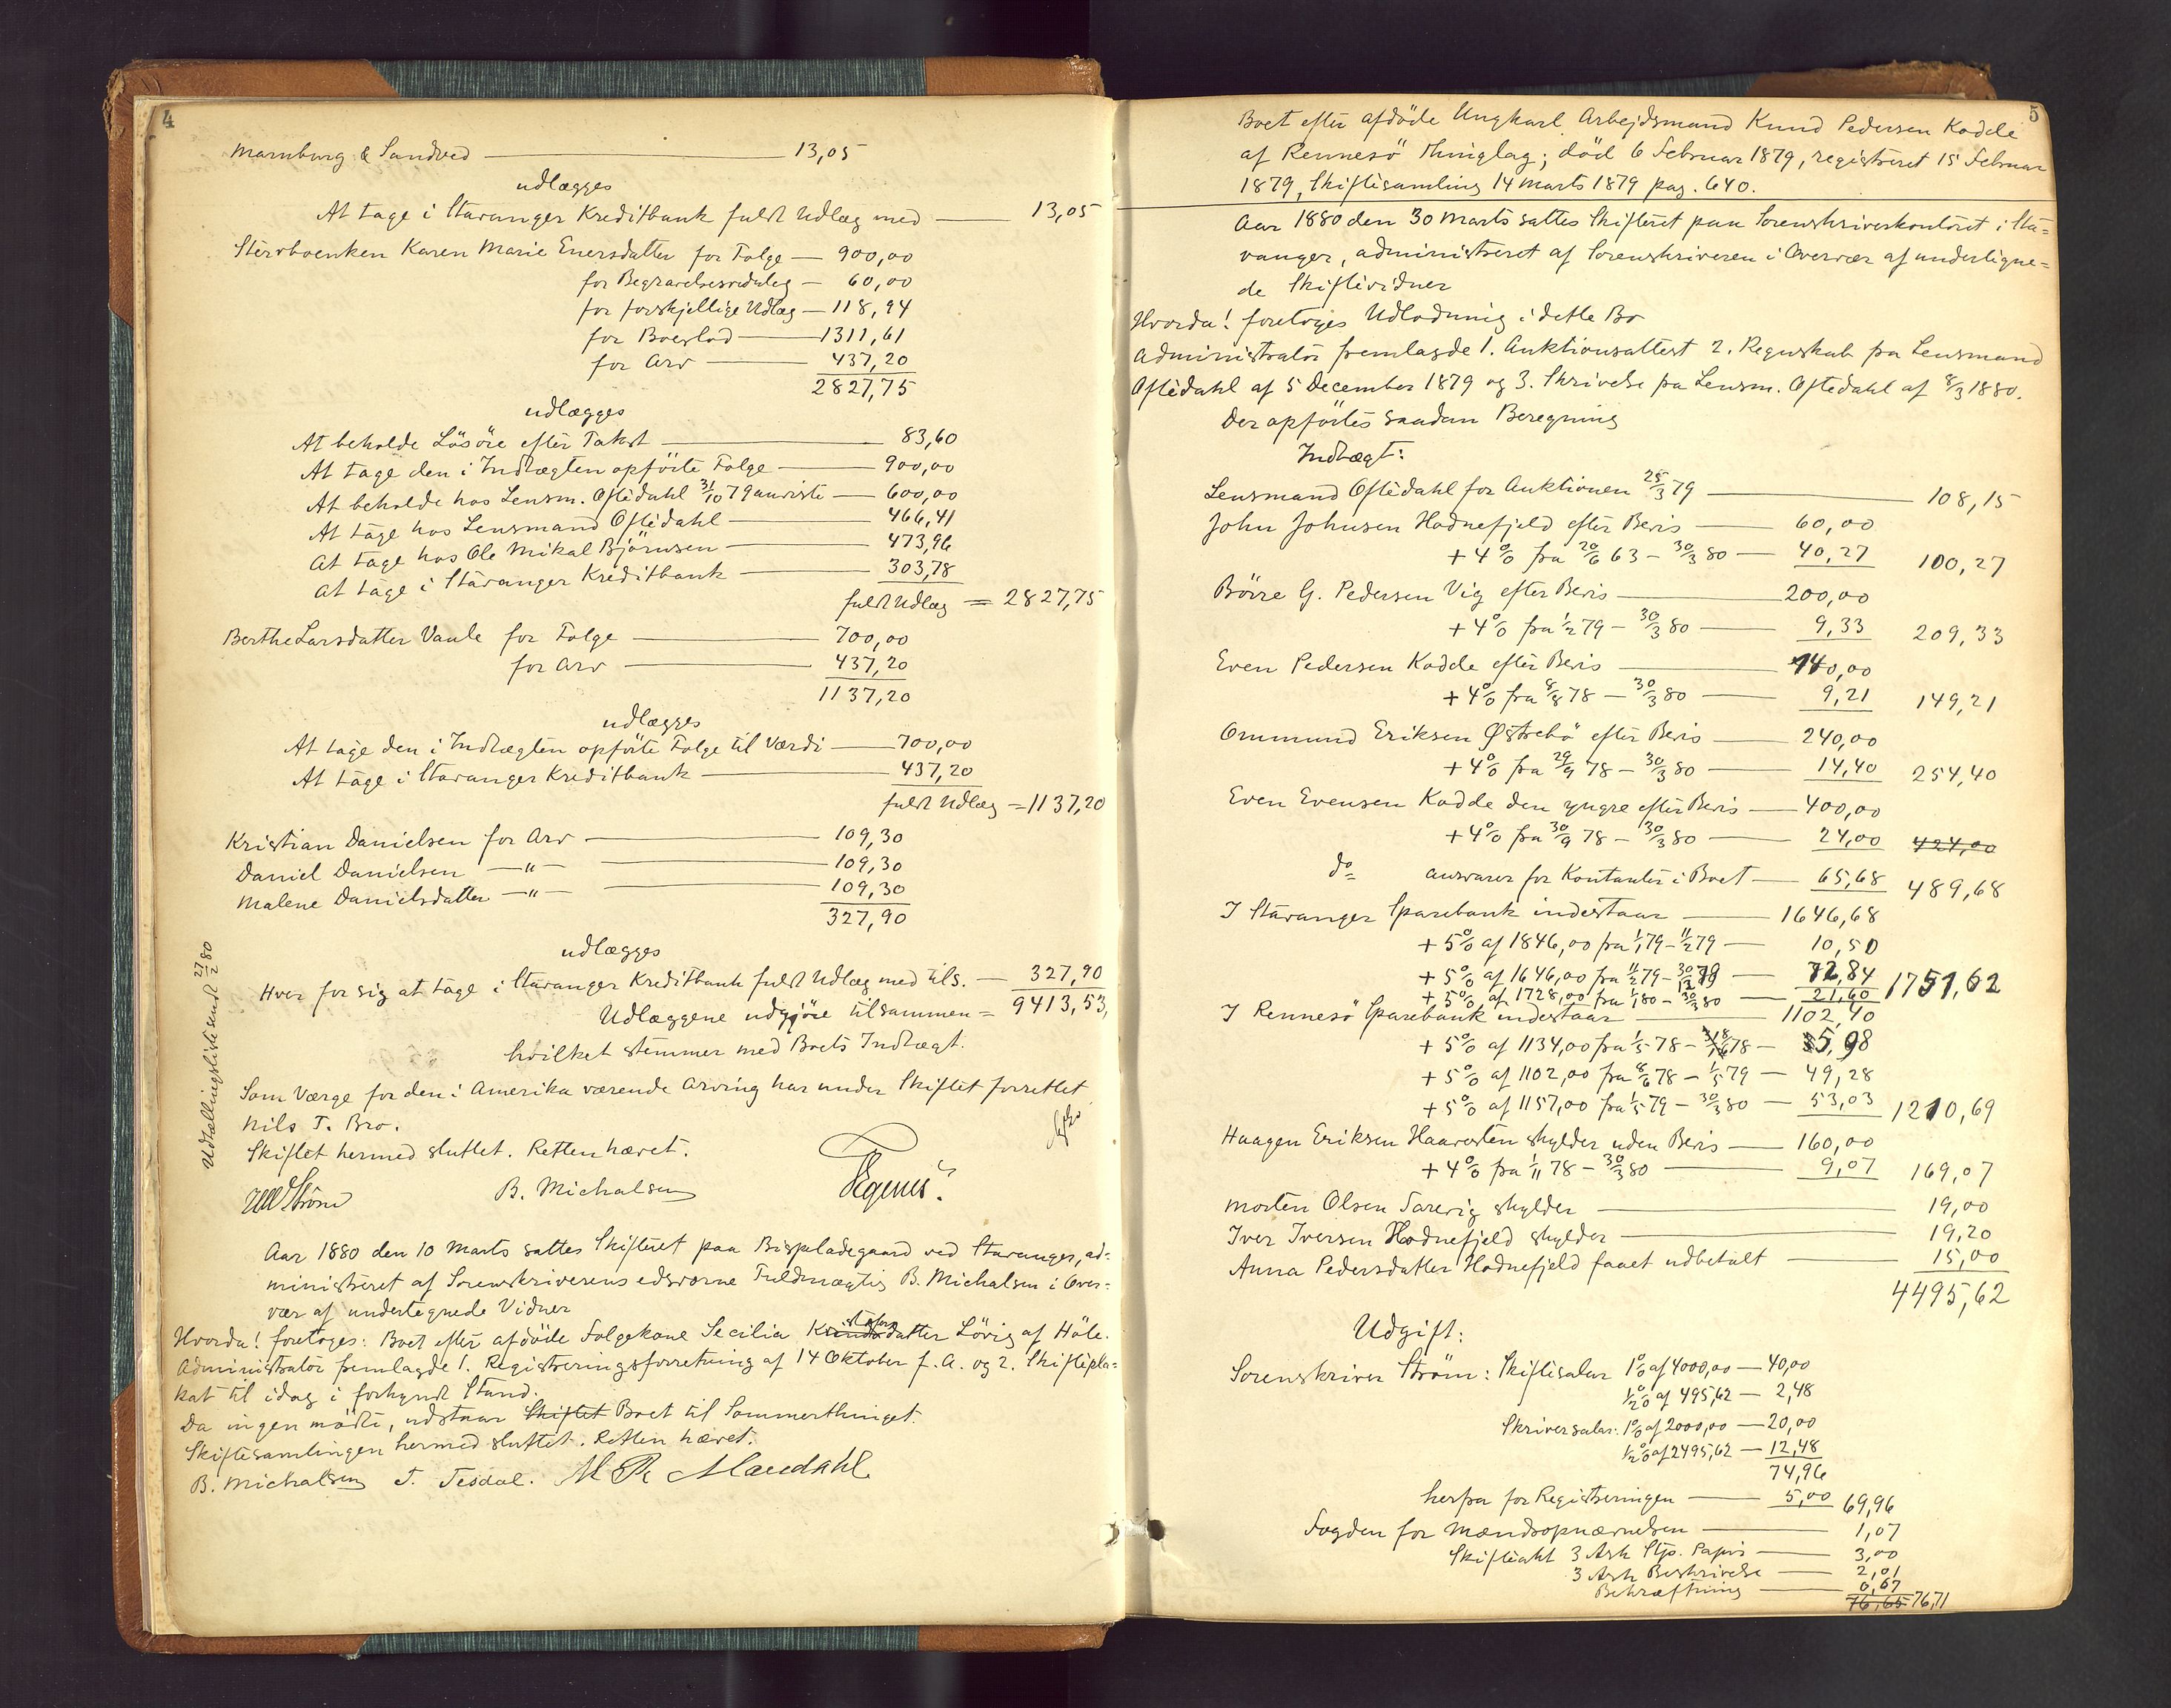 4
Marnburg & Sandved — 13,05
udlægges
At tage i Stavanger Kreditbank fuldt Udlæg med — 13,05
Stervboenken Karen Marie Enersdatter for Folge — 900,00
for Begravelsesudlæg — 60,00
for forskjellige Udlæg — 118,94
for Boeslod — 1311,61
for Arv — 437,20
2827,75
udlægges
At beholde Lösöre efter Takst — 83,60
At tage den i Indtægten opförte Folge — 900,00
At beholde hos Lensm. Oftedahl 31/10 79 anviste — 600,00
At tage hos Lensmand Oftedahl — 466,41
At tage hos Ole Mikal Björnsen — 473,96
At tage i Stavanger Kreditbank — 303,78
fuldt Udlæg = 2827,75
Berthe Larsdatter Vaule for Folge — 700,00
for Arv — 437,20
1137,20
udlægges
At tage den i Indtægten opförte Folge til Værdi — 700,00
At tage i Stavanger Kreditbank — 437,20
fuldt Udlæg = 1137,20
Kristian Danielsen for Arv — 109,30
Daniel Danielsen —"— — 109,30
Malene Danielsdatter —"— — 109,30
327,90
udlægges
Hver for sig at tage i Stavanger Kreditbank fuldt Udlæg med tils. — 327,90
Udlæggene udgjöre tilsammen = 9413,53,
hvilket stemmer med Boets Indtægt.
Som Værge for den i Amerika værende Arving har under Skiftet forrettet
Nils T. Bro.
Skiftet hermed sluttet. Retten hævet.
B. Michalsen
Udtællingsliste sendt 27/2 80
Aar 1880 den 10 Marts sattes Skifteret paa Bispeladegaard ved Stavanger, ad-
ministreret af Sorenskriverens edsvorne Fuldmægtig B. Michalsen i Over-
vær af undertegnede Vidner
Hvorda! foretoges: Boet efter afdöde Folgekone Secilia Knudsdatter Lövig af Höle.
Administrator fremlagde 1. Registreringsforretning af 14 Oktober f. A. og 2. Skiftepla-
kat til idag i forkyndt Stand.
Da ingen mödte, udstaar Skiftet Boet til Sommerthinget.
Skiftesamlingen hermed sluttet. Retten hævet.
B. Michalsen T. Tesdal.
5
Boet efter afdöde Ungkarl Arbejdsmand Knud Pedersen Kodde
af Rennesö Thinglag; död 6 Februar 1879, registreret 15 Februar
1879, Skiftesamling 14 Marts 1879 pag. 640.
Aar 1880 den 30 Marts sattes Skifteret paa Sorenskriverkontoret i Sta-
vanger, administreret af Sorenskriveren i Overvær af undertegne-
de Skiftevidner
Hvorda! foretoges Udlodning i dette Bo
Administrator fremlagde 1. Auktionsattest 2. Regnskab fra Lensmand
Oftedahl af 5 December 1879 og 3. Skrivelse fra Lensm. Oftedahl af 8/3 1880.
Der opförtes saadan Beregning
Indtægt:
Lensmand Oftedahl for Auktionen 25/3 79 — 108,15
John Johnsen Hodnefjeld efter Bevis — 60,00
+ 4% fra 20/6 63 – 30/3 80 — 40,27 100,27
Börre G. Pedersen Vig efter Bevis — 200,00
+ 4% fra 1/2 79 – 30/3 80 — 9,33 209,33
Even Pedersen Kodde efter Bevis — 140,00
+ 4% fra 8/8 78 – 30/3 80 — 9,21 149,21
Ommund Eriksen Östrebö efter Bevis — 240,00
+ 4% fra 29/9 78 – 30/3 80 — 14,40 254,40
Even Evensen Kodde den yngre efter Bevis — 400,00
+ 4% fra 30/9 78 – 30/3 80 — 24,00 424,00
do ansvarer for Kontanter i Boet — 65,68 489,68
I Stavanger Sparebank indestaar — 1646,68
+ 5% af 1846,00 fra 1/1 79 – 11/2 79 — 10,50
+ 5% af 1646,00 fra 11/2 79 – 30/12 79 — 72,84
+ 5% af 1728,00 fra 1/1 80 – 30/3 80 — 21,60 1751,62
I Rennesö Sparebank indestaar — 1102,40
+ 5% af 1134,00 fra 1/5 78 – 8/6 78 — 5,98
+ 5% af 1102,00 fra 8/6 78 – 1/5 79 — 49,28
+ 5% af 1157,00 fra 1/5 79 – 30/3 80 — 53,03 1210,69
Haagen Eriksen Haavesten skylder uden Bevis — 160,00
+ 4% fra 1/11 78 – 30/3 80 — 9,07 169,07
Morten Olsen Sarevig skylder — 19,00
Iver Iversen Hodnefjeld skylder — 19,20
Anna Pedersdatter Hodnefjeld faaet udbetalt — 15,00
4495,62
Udgift:
Sorenskriver Ström: Skiftesalær 1% af 4000,00 — 40,00
1/2% af 495,62 — 2,48
Skriversalær: 1% af 2000,00 — 20,00
1/2% af 2495,62 — 12,48
74,96
herfra for Registreringen — 5,00 69,96
Fogden for Mændsopnævnelsen — 1,07
Skifteakt 3 Ark Stp. Papir — 3,00
3 Ark Beskrivelse — 2,01
Bekræftning — 0,67
76,65 76,71